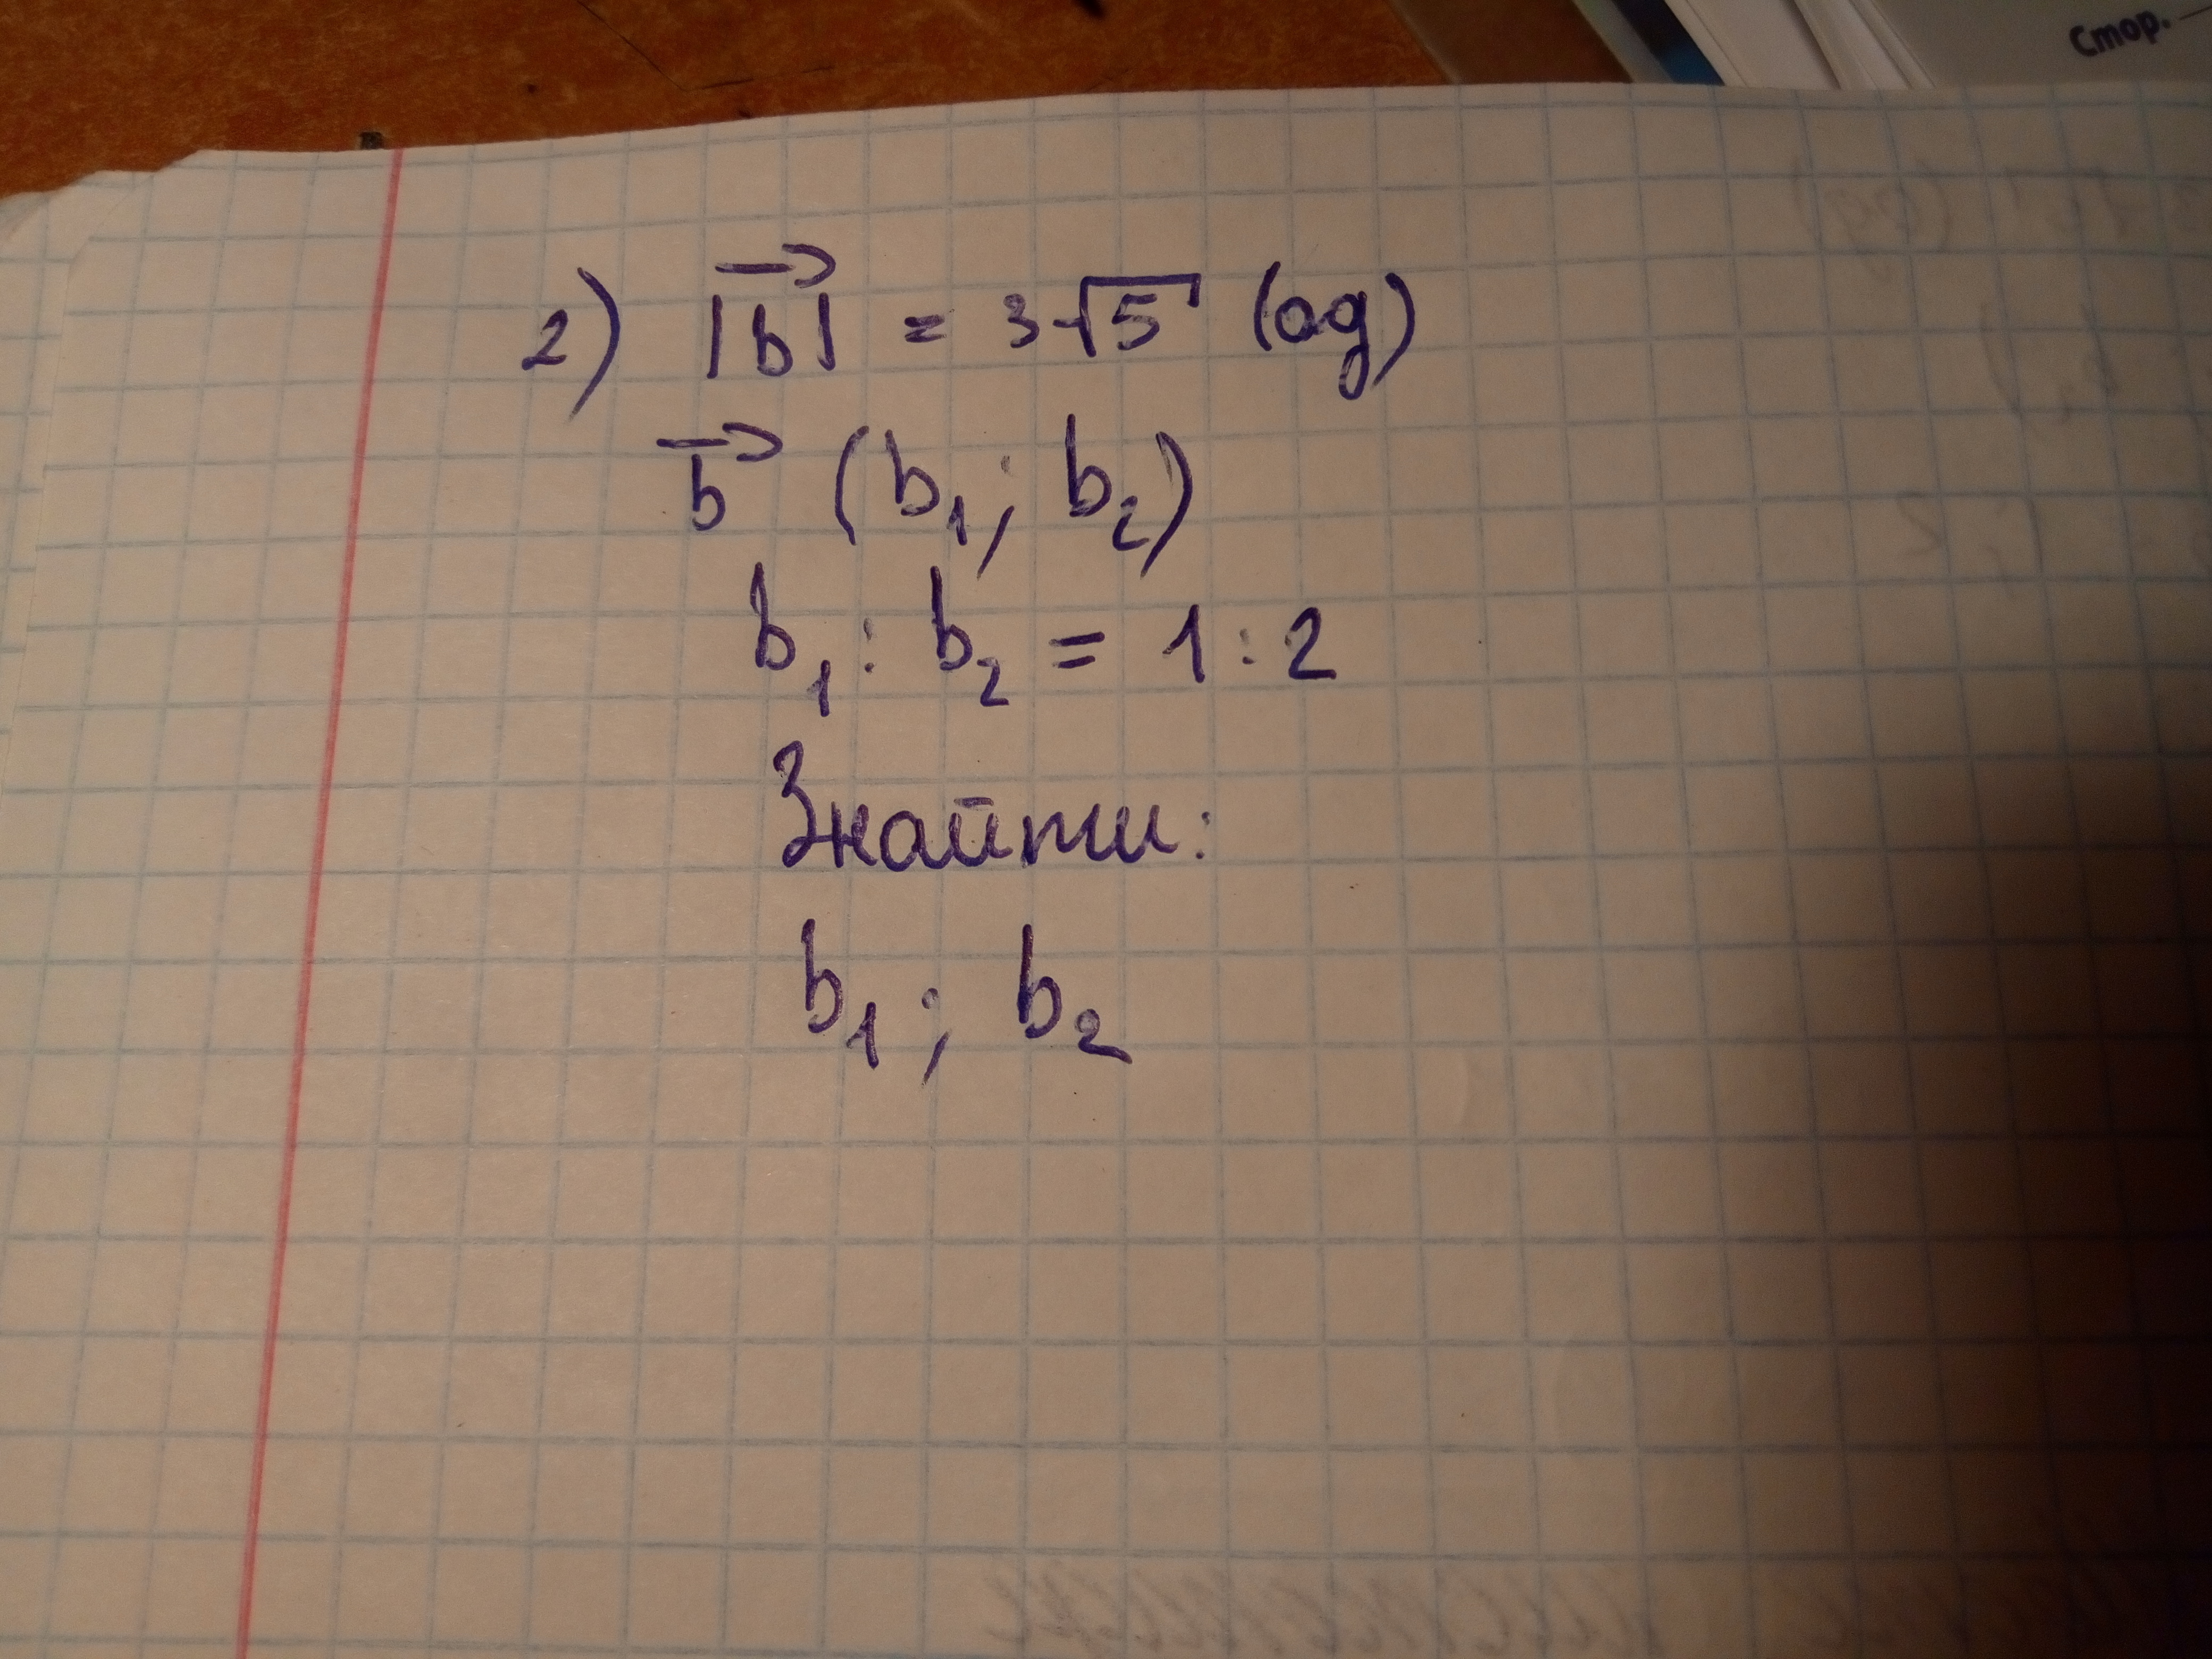 Стор.
2) |b⃗| = 3√5 (од)
b⃗ (b₁; b₂)
b₁ : b₂ = 1 : 2
Знайти:
b₁; b₂